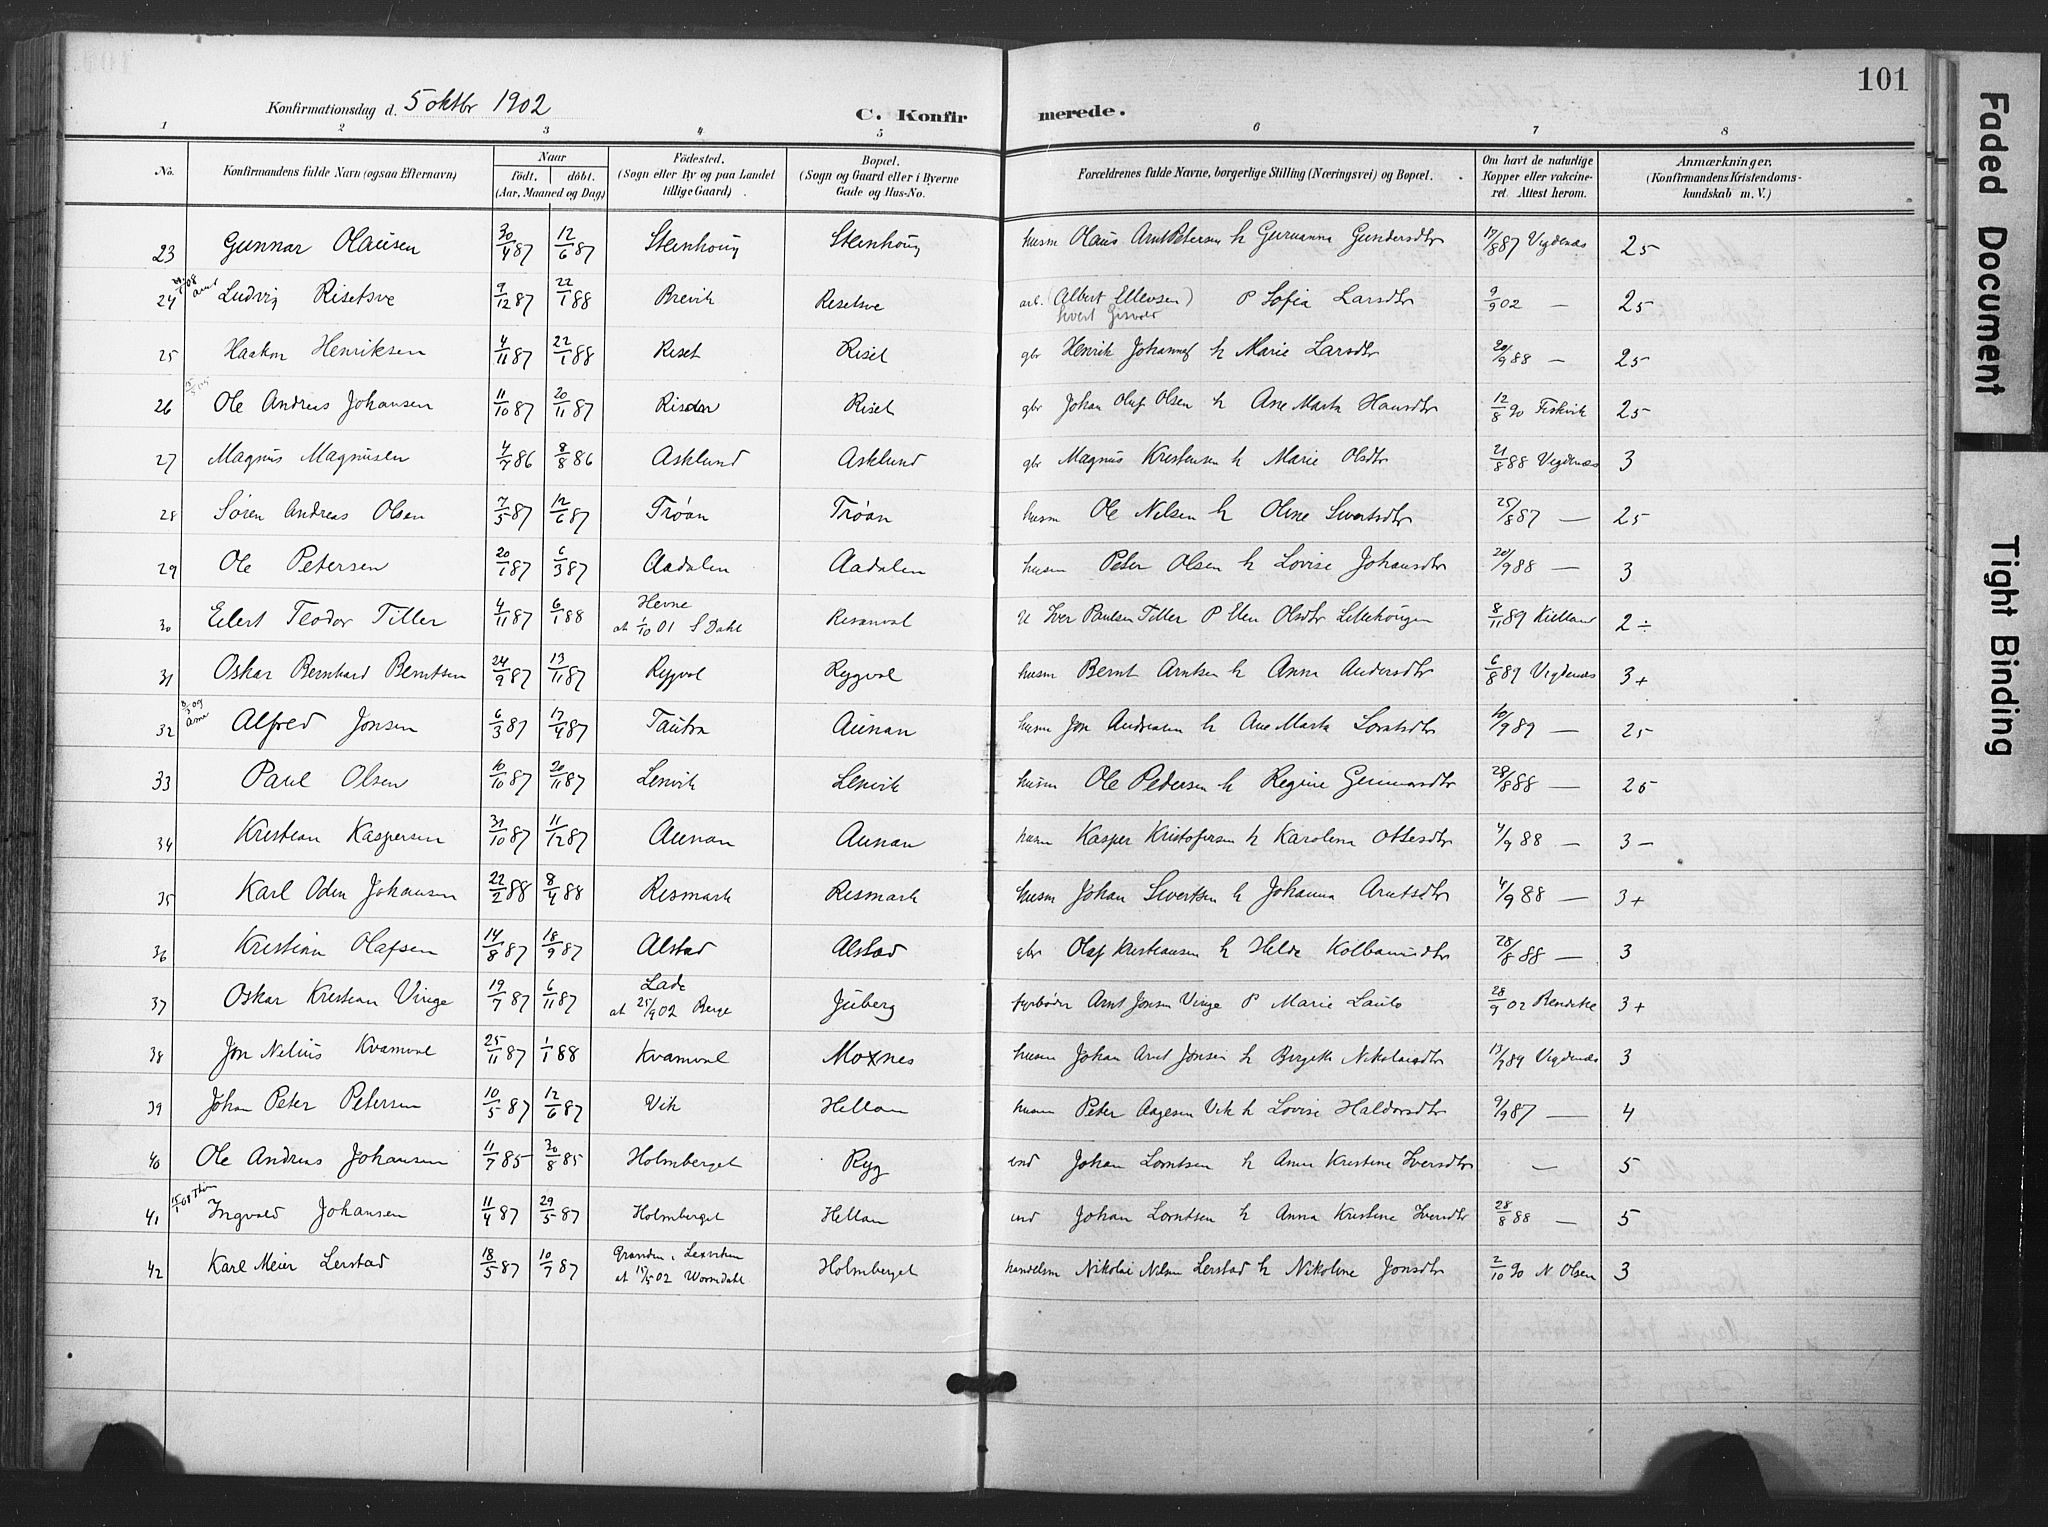 101
Konfirmationsdag d. 5 oktbr 1902
C. Konfirmerede.
1 2 3 4 5 6 7 8
No. Konfirmandens fulde Navn (ogsaa Efternavn) Naar født. døbt. (Aar, Maaned og Dag) Fødested. (Sogn eller By og paa Landet tillige Gaard) Bopæl. (Sogn og Gaard eller i Byerne Gade og Hus-No. Forældrenes fulde Navne, borgerlige Stilling (Næringsvei) og Bopæl. Om havt de naturlige Kopper eller vakcineret. Attest herom. Anmærkninger. (Konfirmandens Kristendomskundskab m. V.)
23 Gunnar Olausen 30/4 87 12/6 87 Steinhoug Steinhoug husm Olaus Arnt Petersen h Guruanna Gundersdtr 17/8 87 Vigdenæs 25
24 Ludvig Risetsve 9/12 87 22/1 88 Brevik Risetsve arb. (Albert Ellevsen) P Sofia Larsdtr 9/9 02 — 25
25 Haakon Henriksen 4/11 87 22/1 88 Riset Riset gbr Henrik Johannes h Marie Larsdtr 20/9 88 — 25
26 Ole Andreas Johansen 11/10 87 20/11 87 Risdar Riset gbr Johan Oluf Olsen h Ane Marta Hansdtr 12/8 90 Fiskvik 25
27 Magnus Magnusen 4/7 86 8/8 86 Asklund Asklund gbr Magnus Kristensen h Marie Olsdtr 21/8 88 Vigdenæs 3
28 Søren Andreas Olsen 7/5 87 12/6 87 Trøan Trøan husm Ole Nilsen h Oline Sivertsdtr 25/8 87 — 25
29 Ole Petersen 20/1 87 6/3 87 Aadalen Aadalen husm Peter Olsen h Lovise Johansdtr 20/9 88 — 3
30 Eilert Teodor Tiller 4/11 87 6/1 88 Hevne at 1/10 01 S Dahl Risanvol U Iver Paulsen Tiller P Elen Olsdtr Litlehougen 8/11 89 Kielland 2 ÷
31 Oskar Bernhard Berntsen 24/9 87 13/11 87 Rygvol Rygvol husm Bernt Arntsen h Anna Andersdtr 6/8 89 Vigdenæs 3+
32 Alfred Jonsen 6/3 87 17/4 87 Tautra Aunan husm Jon Andreasen h Ane Marta Lorntsdtr 10/9 89 — 25
33 Paul Olsen 10/10 87 20/11 87 Lenvik Lenvik husm Ole Pedersen h Regine Gunnarsdtr 28/8 88 — 25
34 Kristian Kaspersen 31/10 87 11/12 87 Aunan Aunan husm Kasper Kristofersen h Karolina Ottesdtr 4/9 88 — 3 —
35 Karl Odin Johansen 22/2 88 8/4 88 Rismark Rismark husm Johan Sivertsen h Johanna Arntsdtr 4/9 88 — 3+
36 Kristian Olafsen 14/8 87 18/9 87 Alstad Alstad gbr Olaf Kristiansen h Hilda Kolbanusdtr 28/8 88 — 3
37 Oskar Kristian Vinge 19/7 87 6/11 87 Lade at 25/9 02 Berge Juberg fyrbøder Arnt Jonsen Vinge P Marie Laulo 28/9 02 Bendike 3+
38 Jon Nelius Kvamvol 25/11 87 1/1 88 Kvamvol Moxnes husm Johan Arnt Jonsen h Birgitte Nikolaisdtr 13/9 89 Vigdenæs 3
39 Johan Peter Petersen 10/5 87 12/6 87 Vik Hellan husm Peter Aagesen Vik h Lovise Haldorsdtr 9/9 87 — 4
40 Ole Andreas Johansen 11/7 85 30/8 85 Holmberget Ryg ind Johan Lorntsen h Anna Kristine Iversdtr — 5
41 Ingvald Johansen 11/4 87 29/5 87 Holmberget Hellan ind Johan Lorntsen h Anna Kristine Iversdtr 28/8 88 — 5
42 Karl Meier Lerstad 18/5 87 10/7 87 Granden i Lexviken at 15/5 02 Wormdahl Holmberget handelsm Nikolai Nilsen Lerstad h Nikoline Jonsdtr 2/10 90 N Olsen 3
Faded Document
Tight Binding